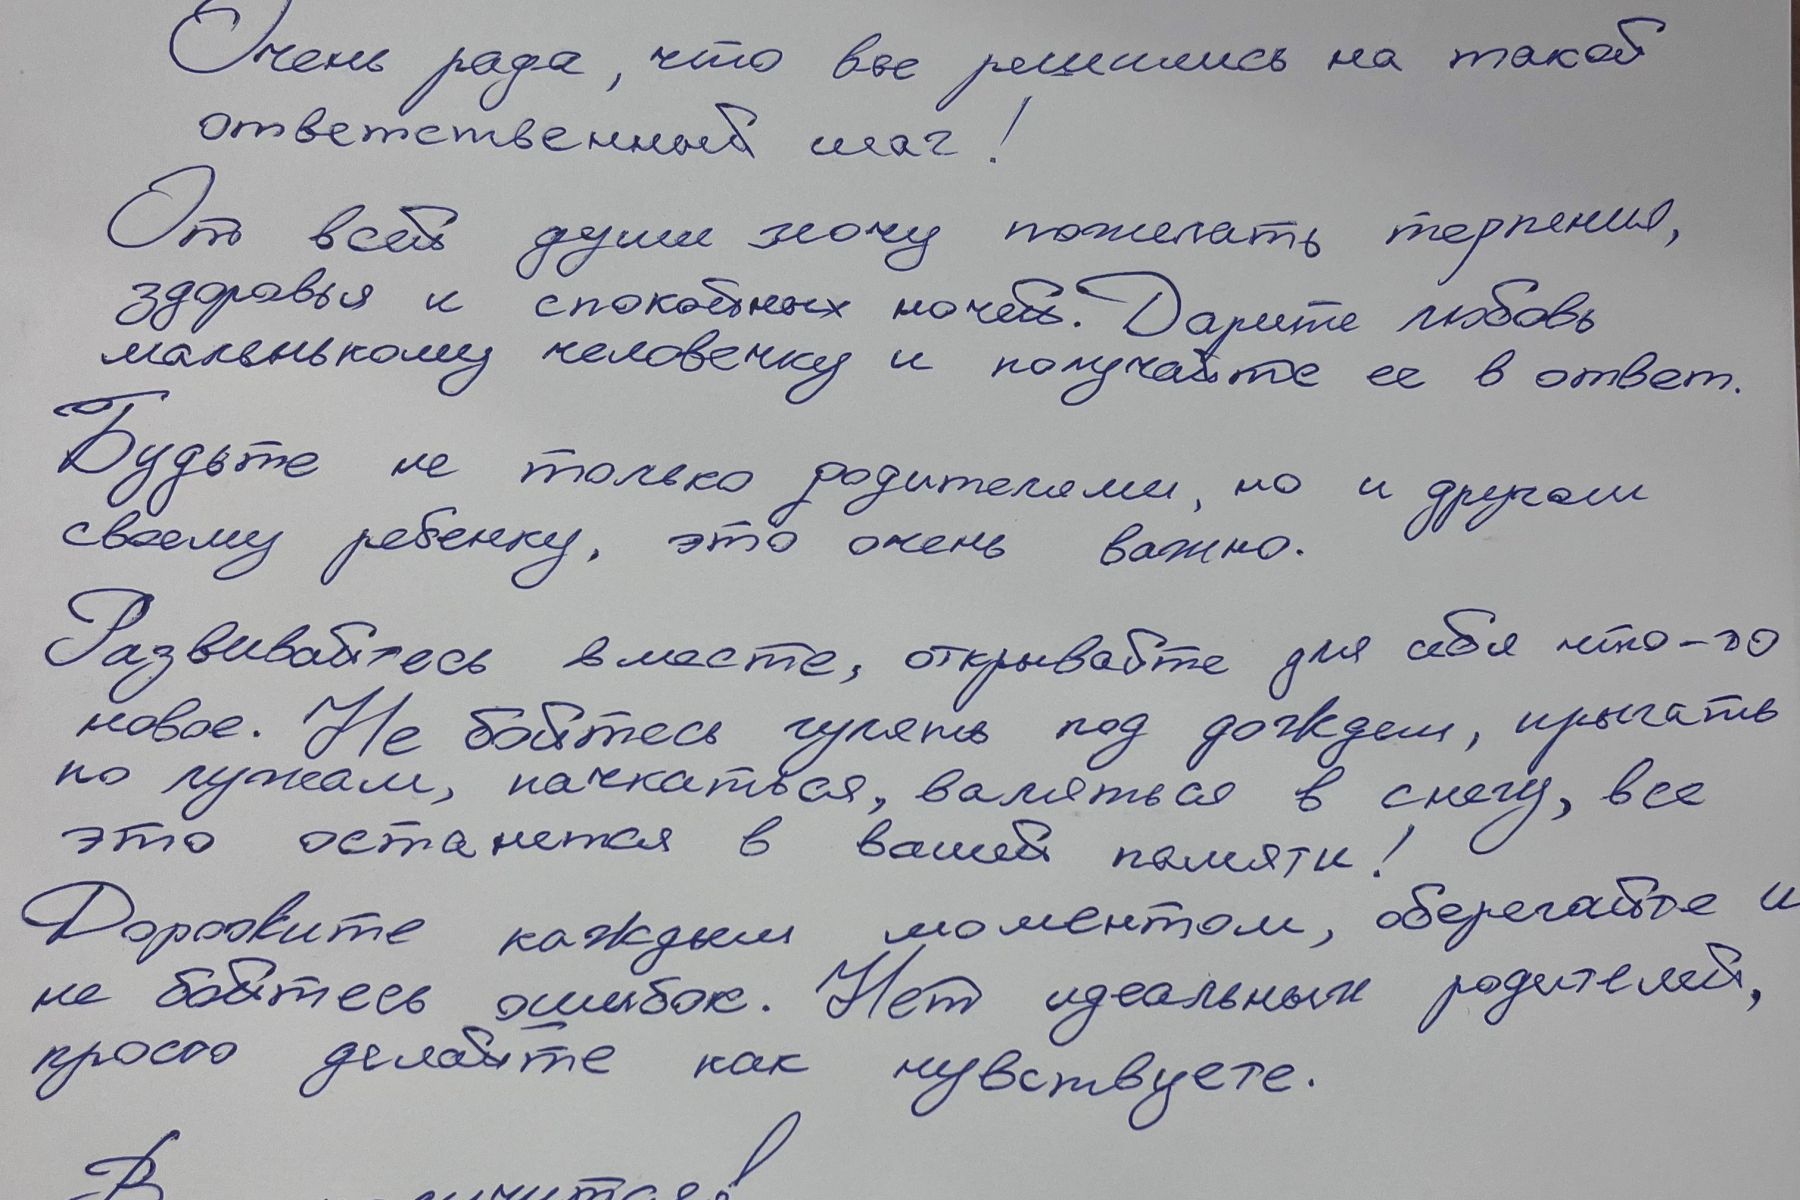 Очень рада, что вы решились на такой
ответственный шаг!
От всей души хочу пожелать терпения,
здоровья и спокойных ночей. Дарите любовь
маленькому человечку и получайте ее в ответ.
Будьте не только родителями, но и другом
своему ребенку, это очень важно.
Развивайтесь вместе, открывайте для себя что-то
новое. Не бойтесь гулять под дождем, прыгать
по лужам, пачкаться, валяться в снегу, все
это останется в вашей памяти!
Дорожите каждым моментом, оберегайте и
не бойтесь ошибок. Нет идеальных родителей,
просто делайте как чувствуете.